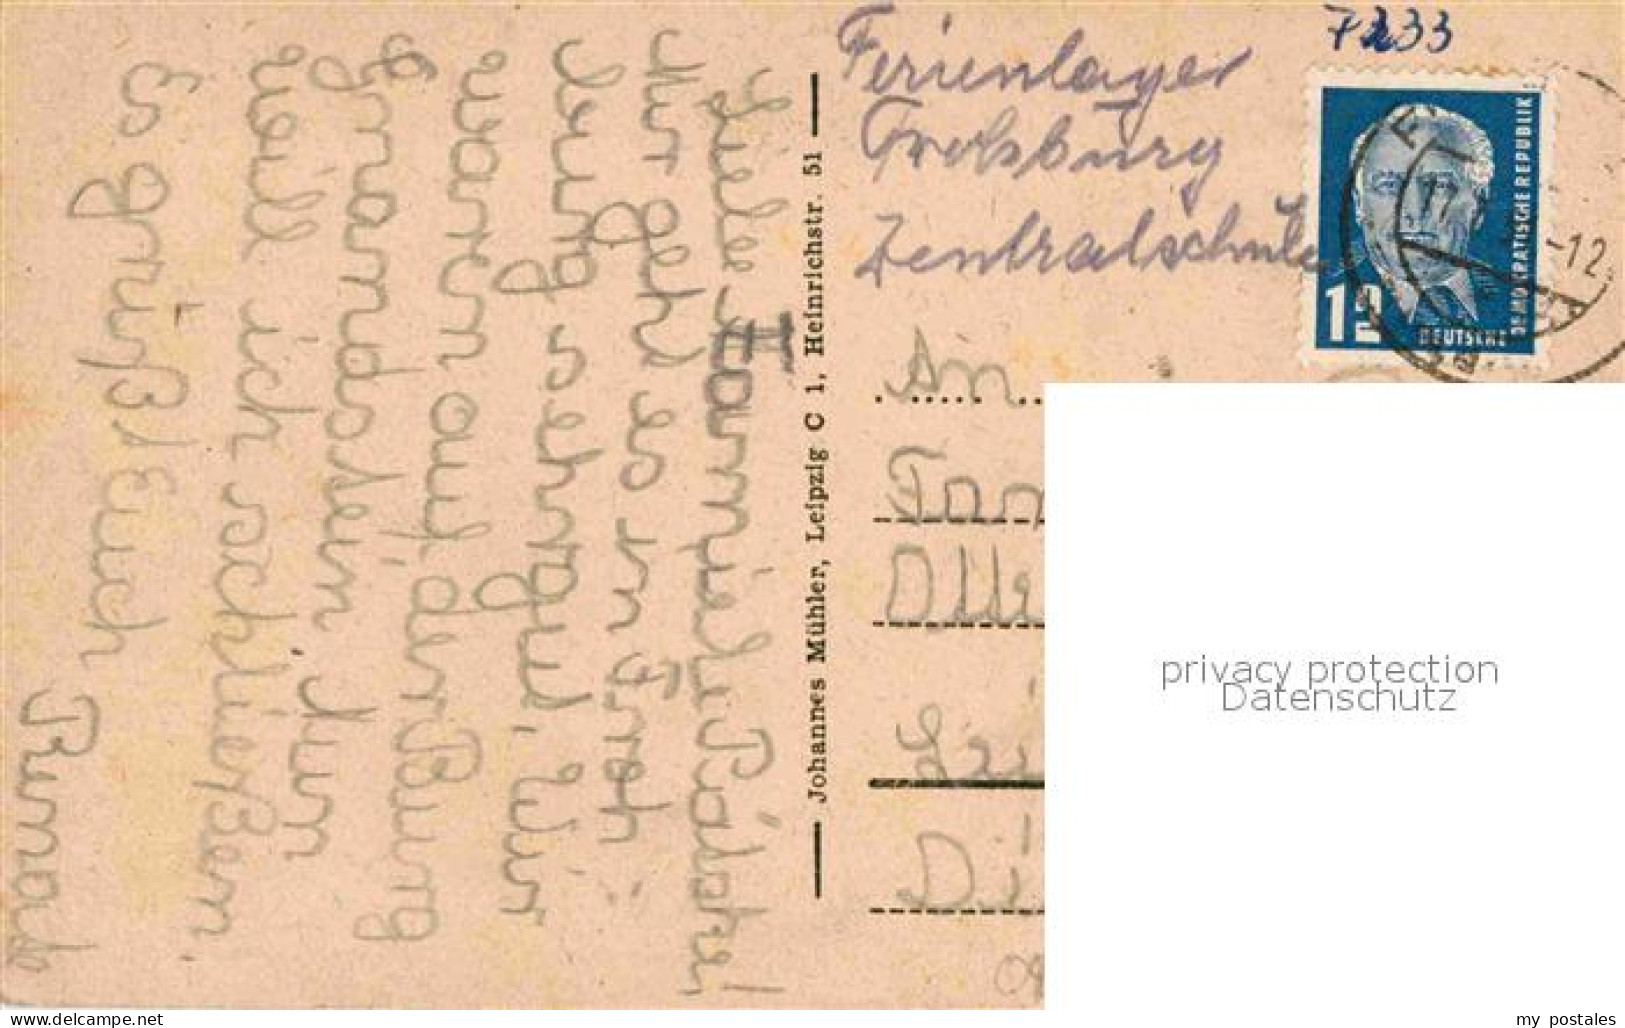 7233
Ferienlager
Frohburg
Zentralschule
12
DEUTSCHE
DEMOKRATISCHE REPUBLIK
-12
An
Fam
Di
Johannes Mühler, Leipzig C 1, Heinrichstr. 51
Liebe Familie
Mir geht es in
burg sehr gut. Wir
waren auf der Burg
Gnandstein Nun
will ich schließen
Es grüßt Euch
privacy protection
Datenschutz
www.delcampe.net
my_postales